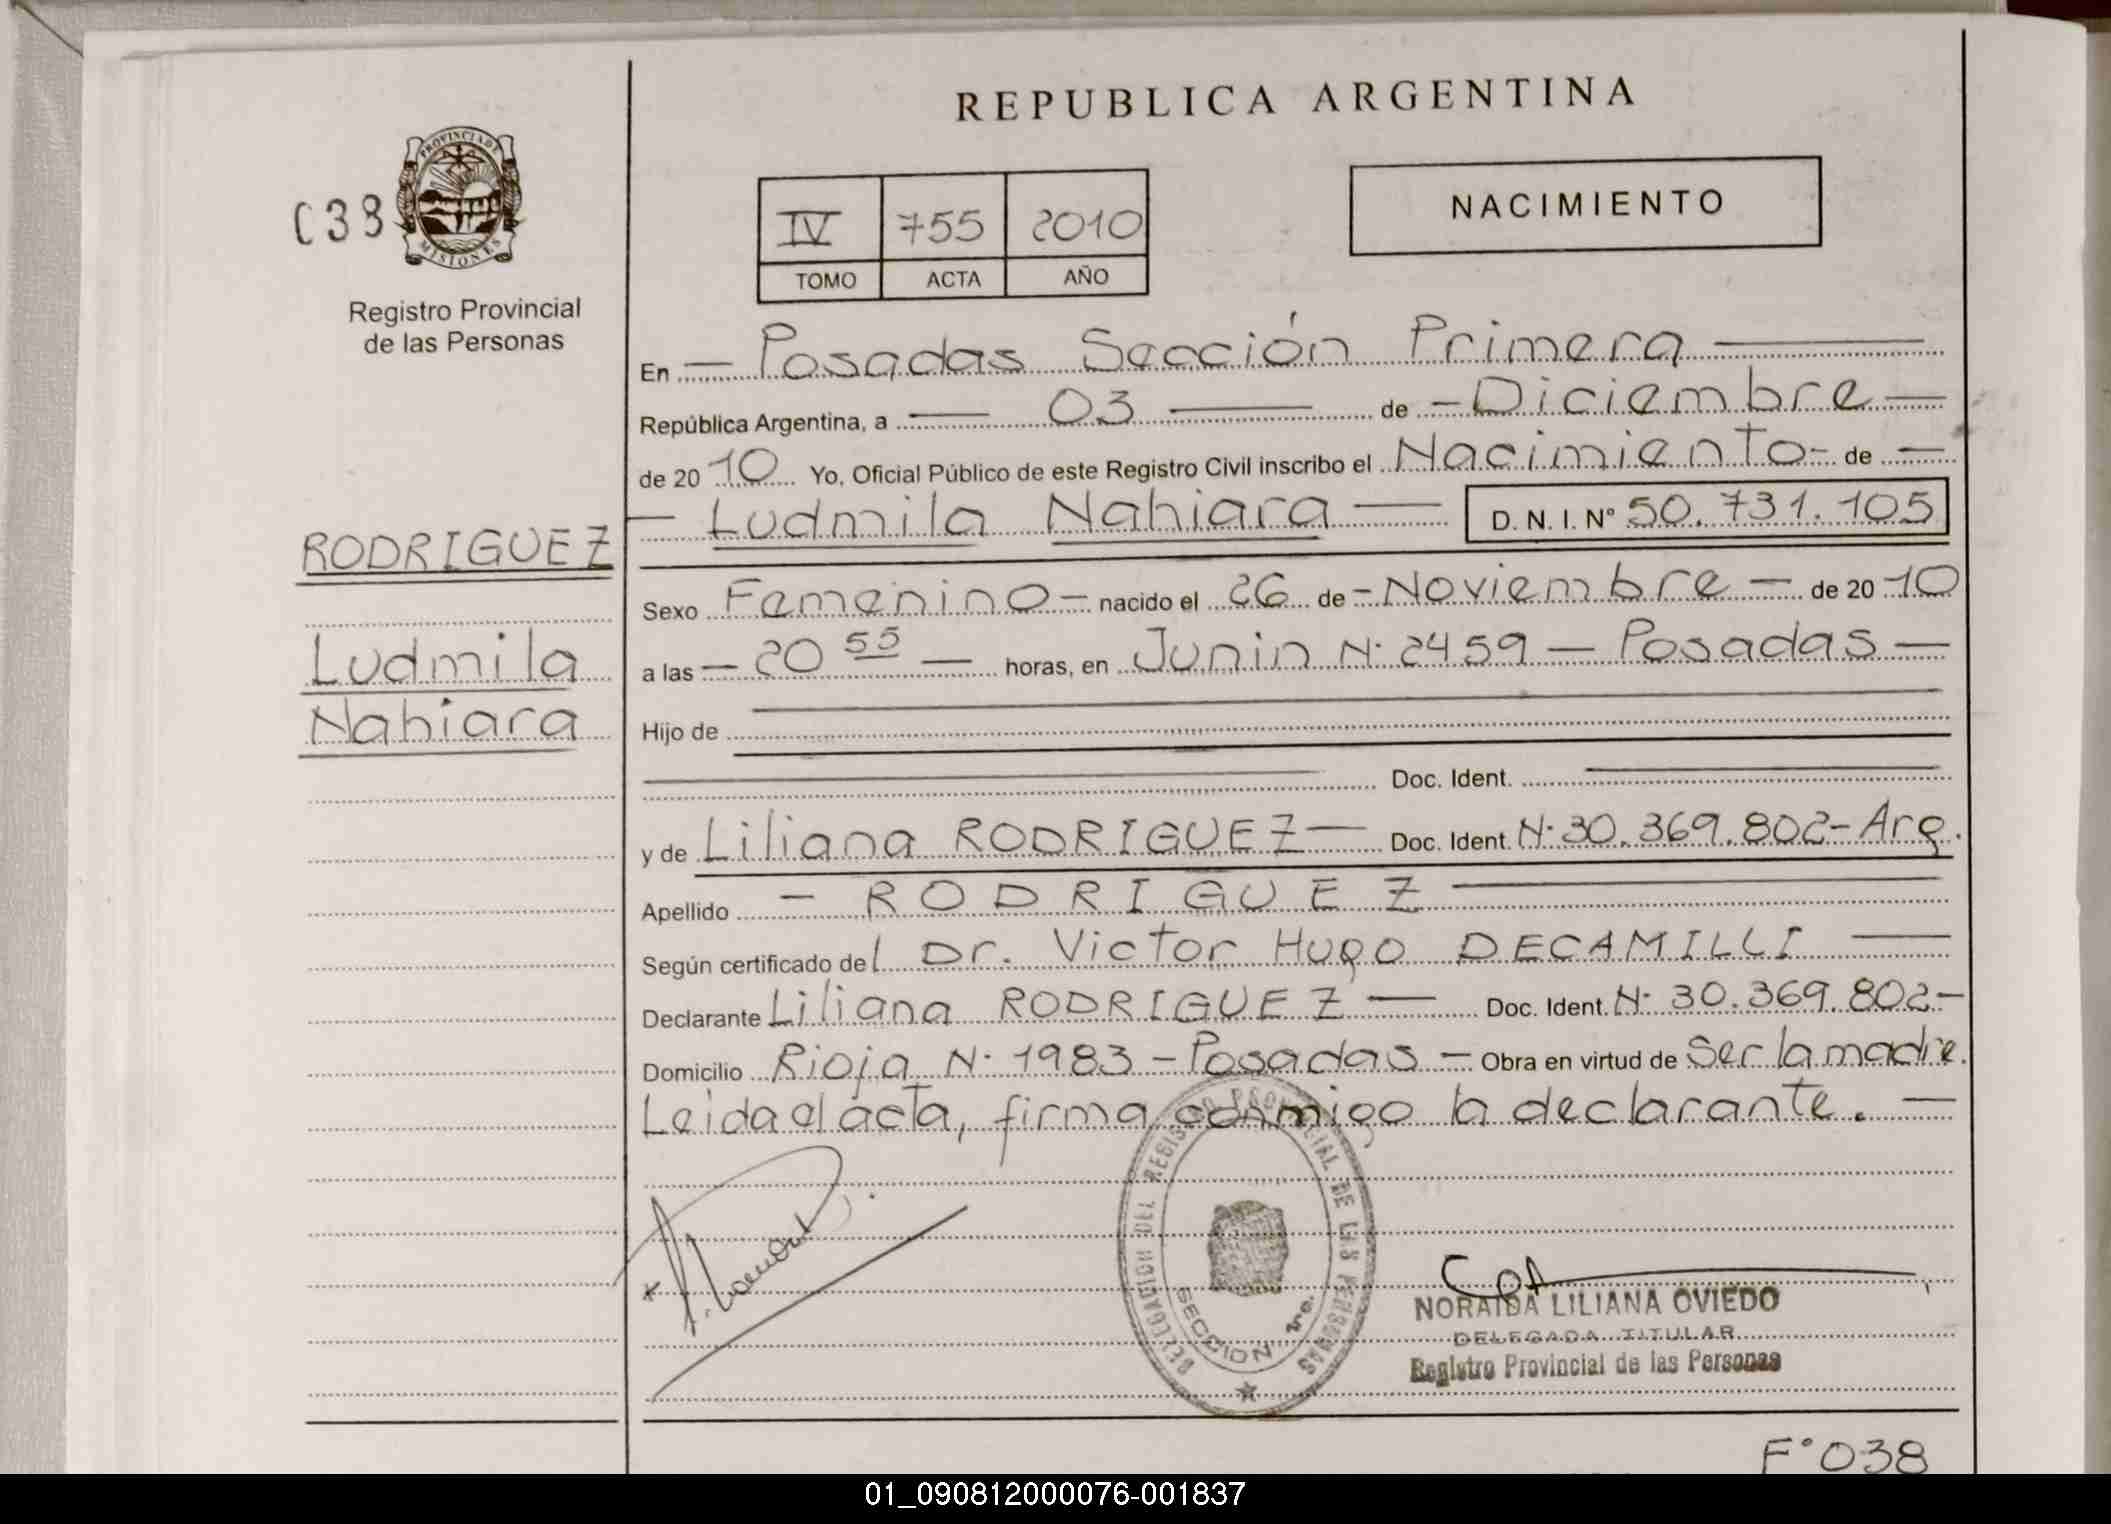 REPUBLICA ARGENTINA
PROVINCIA DE
MISIONES
038
Registro Provincial
de las Personas
IV 755 2010
TOMO ACTA AÑO
NACIMIENTO
En — Posadas Sección Primera —
República Argentina, a — 03 — de — Diciembre —
de 20 10 Yo, Oficial Público de este Registro Civil inscribo el Nacimiento - de —
— Ludmila Nahiara — D. N. I. N° 50.731.105
RODRIGUEZ
Ludmila
Nahiara
Sexo Femenino — nacido el 26 de - Noviembre — de 20 10
a las — 20 55 — horas, en Junin N· 2459 — Posadas —
Hijo de
Doc. Ident.
y de Liliana RODRIGUEZ — Doc. Ident. N· 30.369.802 - Arg.
Apellido — RODRIGUEZ
Según certificado del Dr. Victor Hugo DECAMILLI —
Declarante Liliana RODRIGUEZ — Doc. Ident. N· 30.369.802 -
Domicilio Rioja N· 1983 - Posadas — Obra en virtud de Ser la madre.
Leida el acta, firma conmigo la declarante. —
DELEGACION DEL REGISTRO PROVINCIAL DE LAS PERSONAS
SECCION 1ra.
NORAIDA LILIANA OVIEDO
DELEGADA TITULAR
Registro Provincial de las Personas
F° 038
01_090812000076-001837